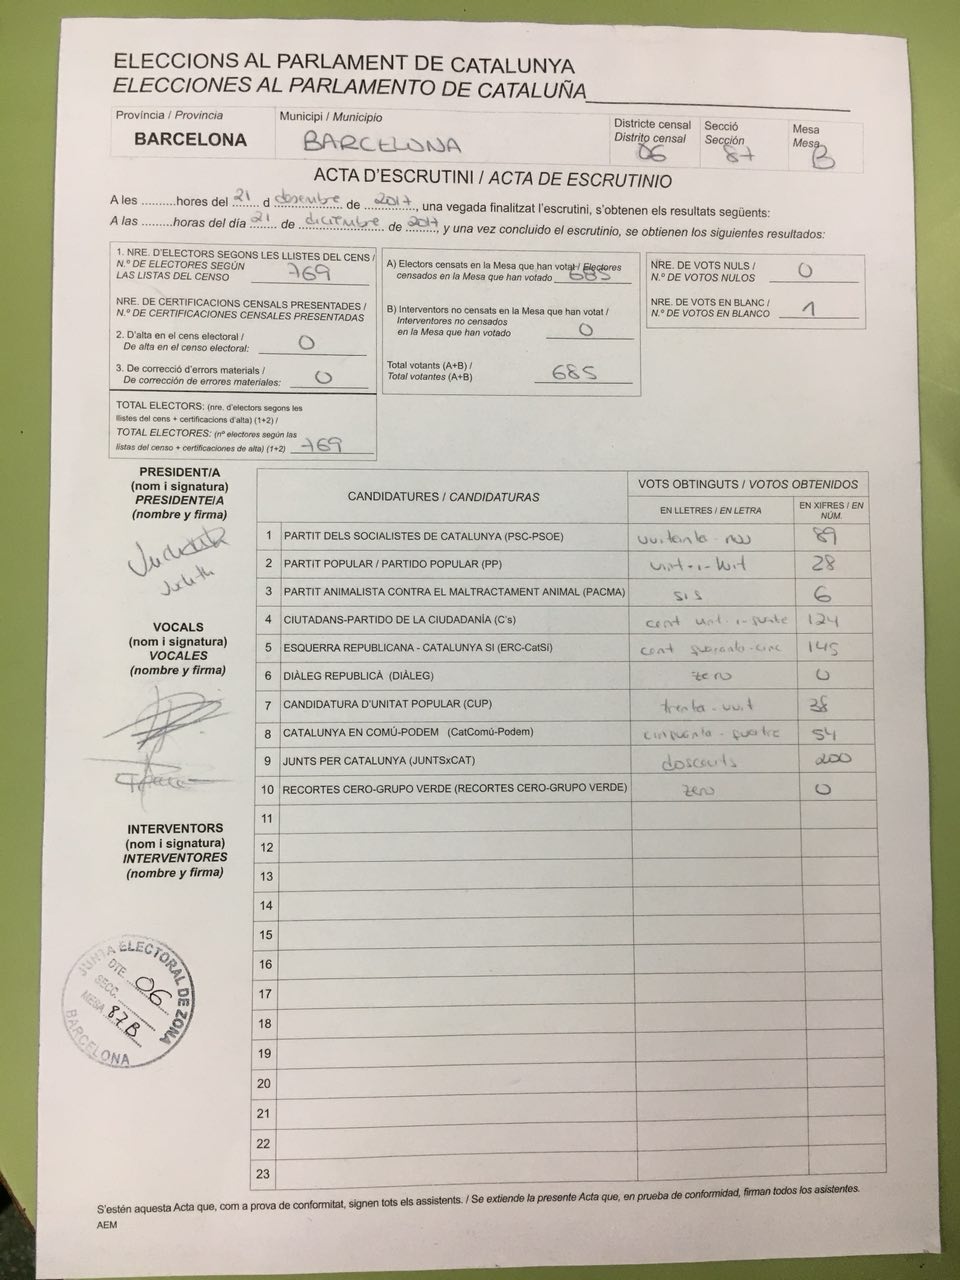 ELECCIONS AL PARLAMENT DE CATALUNYA
ELECCIONES AL PARLAMENTO DE CATALUÑA
Província / Provincia
BARCELONA
Municipi / Municipio
BARCELONA
Districte censal
Distrito censal
06
Secció
Sección
87
Mesa
Mesa
B
ACTA D'ESCRUTINI / ACTA DE ESCRUTINIO
A les .........hores del 21 d desembre de 2017, una vegada finalitzat l'escrutini, s'obtenen els resultats següents:
A las .........horas del día 21 de diciembre de 2017, y una vez concluido el escrutinio, se obtienen los siguientes resultados:
1. NRE. D'ELECTORS SEGONS LES LLISTES DEL CENS /
N.º DE ELECTORES SEGÚN
LAS LISTAS DEL CENSO 769
NRE. DE CERTIFICACIONS CENSALS PRESENTADES /
N.º DE CERTIFICACIONES CENSALES PRESENTADAS
2. D'alta en el cens electoral /
De alta en el censo electoral: 0
3. De correcció d'errors materials /
De corrección de errores materiales: 0
TOTAL ELECTORS: (nre. d'electors segons les
llistes del cens + certificacions d'alta) (1+2) /
TOTAL ELECTORES: (nº electores según las
listas del censo + certificaciones de alta) (1+2) 769
A) Electors censats en la Mesa que han votat / Electores
censados en la Mesa que han votado 685
B) Interventors no censats en la Mesa que han votat /
Interventores no censados
en la Mesa que han votado 0
Total votants (A+B) /
Total votantes (A+B) 685
NRE. DE VOTS NULS /
N.º DE VOTOS NULOS 0
NRE. DE VOTS EN BLANC /
N.º DE VOTOS EN BLANCO 1
PRESIDENT/A
(nom i signatura)
PRESIDENTE/A
(nombre y firma)
Judith
VOCALS
(nom i signatura)
VOCALES
(nombre y firma)
INTERVENTORS
(nom i signatura)
INTERVENTORES
(nombre y firma)
JUNTA ELECTORAL DE ZONA
DTE. 06
SECC.
MESA 87B
BARCELONA
CANDIDATURES / CANDIDATURAS
VOTS OBTINGUTS / VOTOS OBTENIDOS
EN LLETRES / EN LETRA
EN XIFRES / EN NÚM.
1 PARTIT DELS SOCIALISTES DE CATALUNYA (PSC-PSOE) vuitanta-nou 89
2 PARTIT POPULAR / PARTIDO POPULAR (PP) vint-i-vuit 28
3 PARTIT ANIMALISTA CONTRA EL MALTRACTAMENT ANIMAL (PACMA) sis 6
4 CIUTADANS-PARTIDO DE LA CIUDADANÍA (C's) cent vint-i-quatre 124
5 ESQUERRA REPUBLICANA - CATALUNYA SI (ERC-CatSí) cent quaranta-cinc 145
6 DIÀLEG REPUBLICÀ (DIÀLEG) zero 0
7 CANDIDATURA D'UNITAT POPULAR (CUP) trenta-vuit 38
8 CATALUNYA EN COMÚ-PODEM (CatComú-Podem) cinquanta-quatre 54
9 JUNTS PER CATALUNYA (JUNTSxCAT) doscents 200
10 RECORTES CERO-GRUPO VERDE (RECORTES CERO-GRUPO VERDE) zero 0
11
12
13
14
15
16
17
18
19
20
21
22
23
S'estén aquesta Acta que, com a prova de conformitat, signen tots els assistents. / Se extiende la presente Acta que, en prueba de conformidad, firman todos los asistentes.
AEM